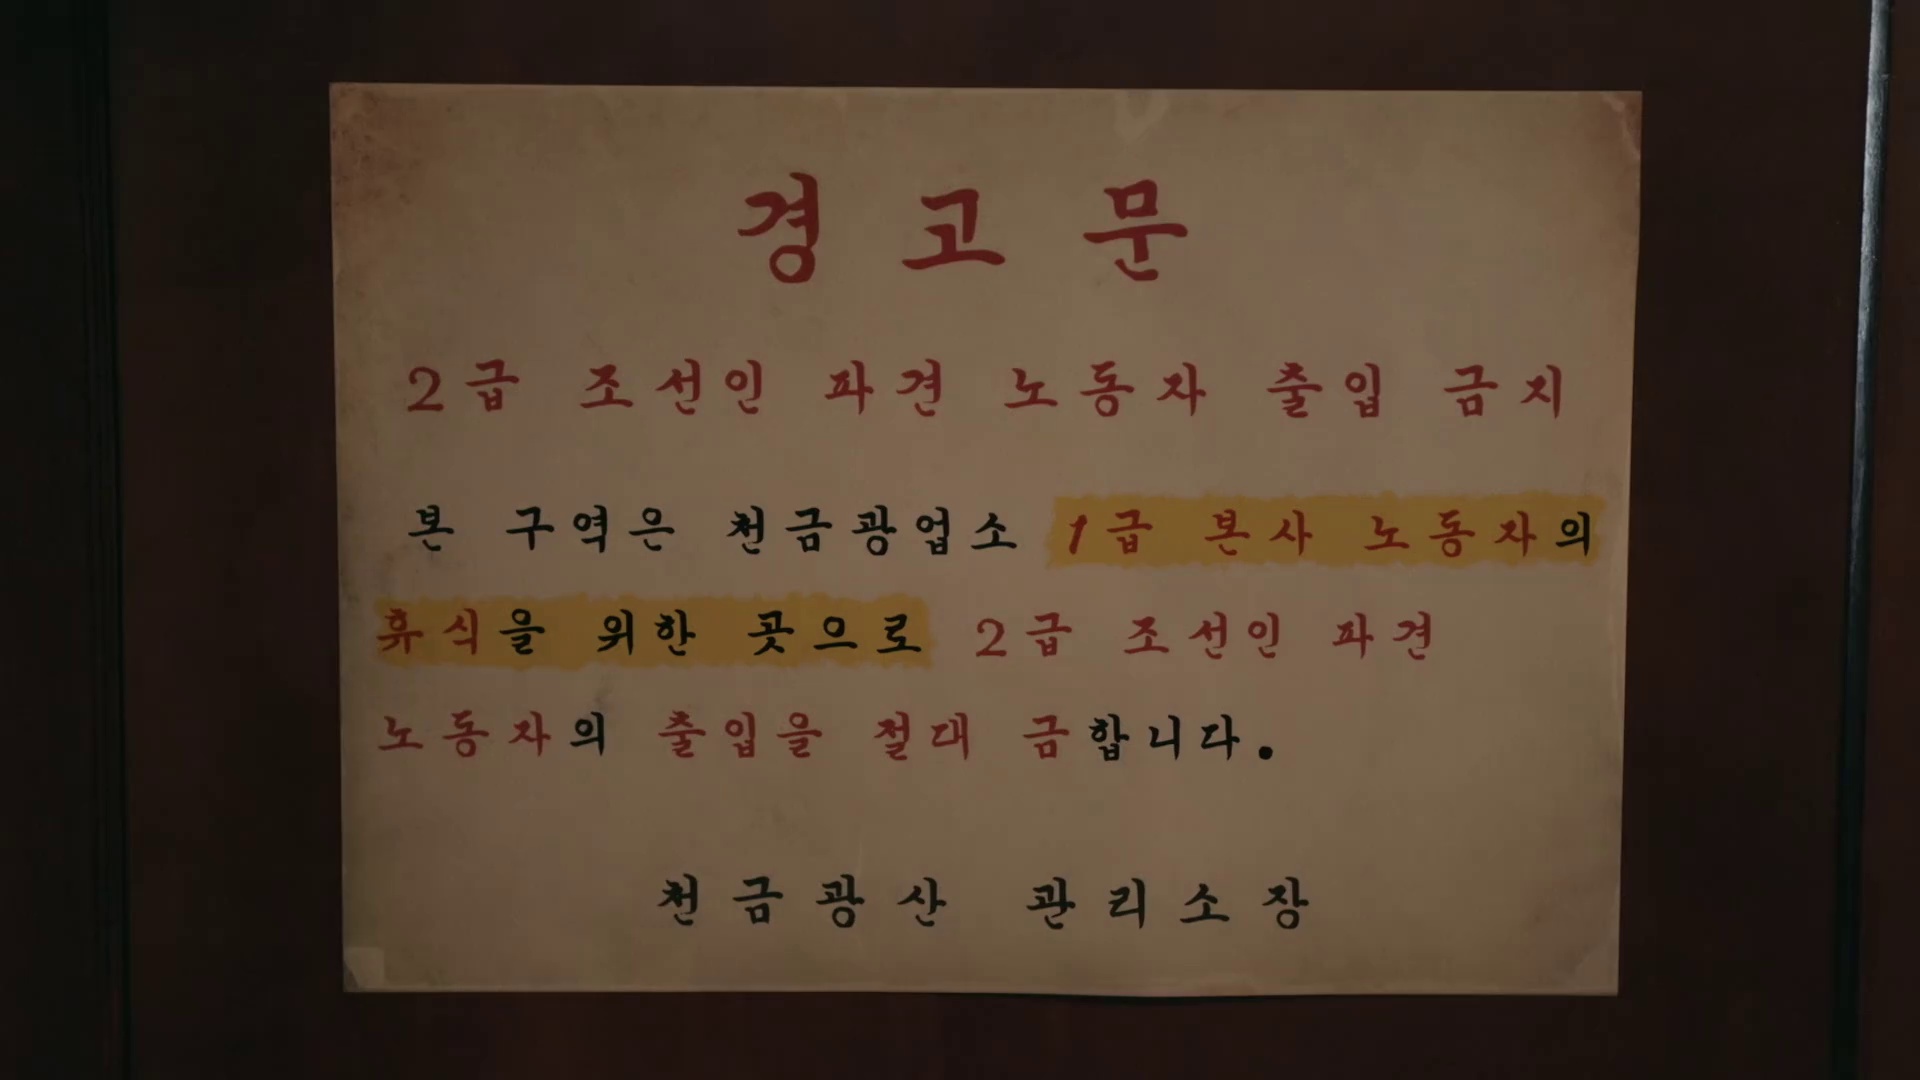 경고문
2급 조선인 파견 노동자 출입 금지
본 구역은 천금광업소 1급 본사 노동자의
휴식을 위한 곳으로 2급 조선인 파견
노동자의 출입을 절대 금합니다.
천금광산 관리소장